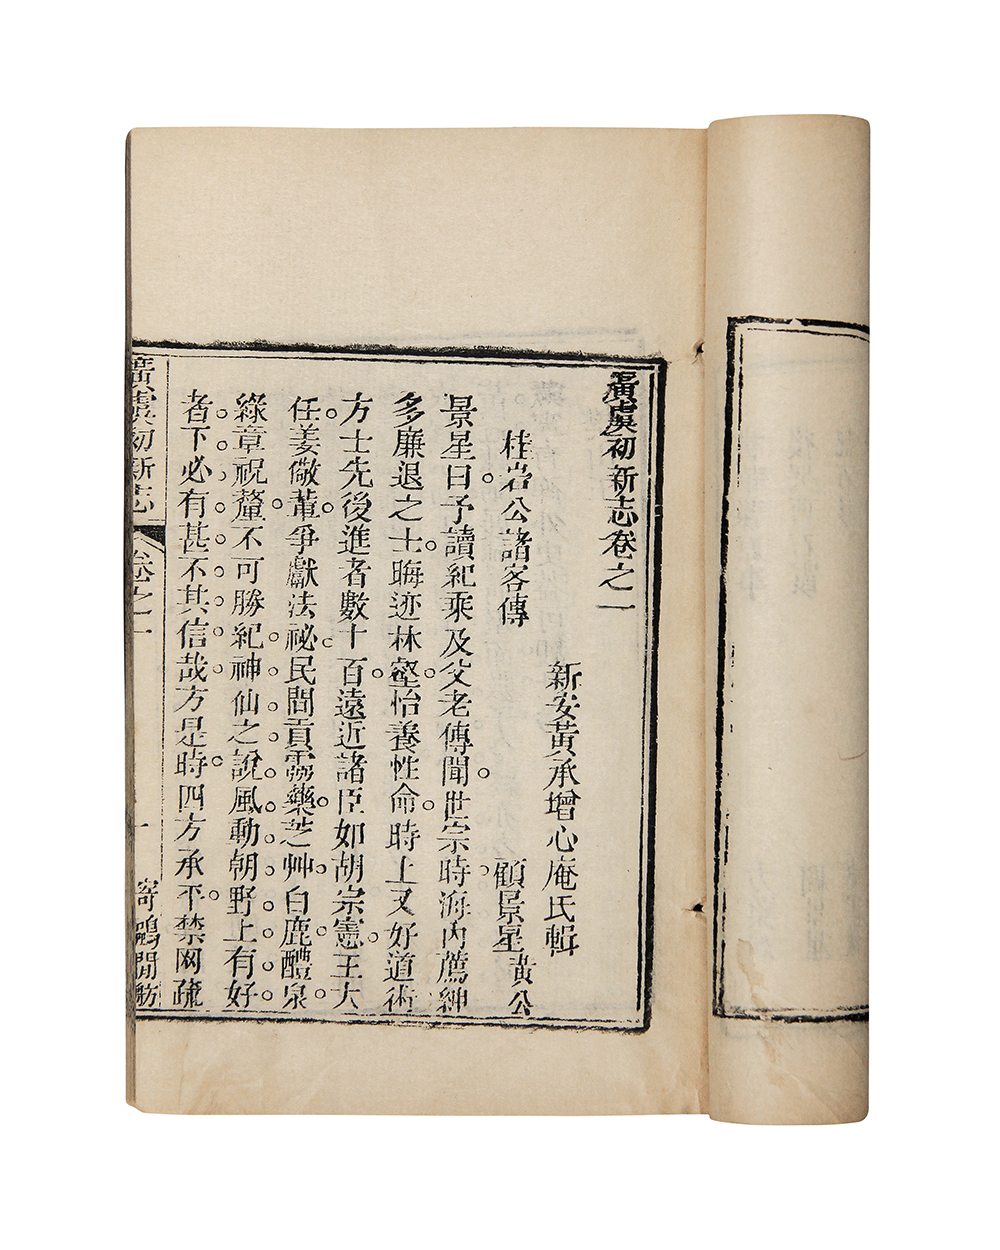 廣虞初新志卷之一
新安黃承增心庵氏輯
桂岩公諸客傳
顧景星 黃公
景星曰予讀紀乘及父老傳聞世宗時海內薦紳
多廉退之士晦迹林壑怡養性命時上又好道術
方士先後進者數十百遠近諸臣如胡宗憲王大
任姜儆輩爭獻法祕民間貢靈藥芝艸白鹿醴泉
綠章祝釐不可勝紀神仙之說風動朝野上有好
者下必有甚不其信哉方是時四方承平禁网疏
廣虞初新志
卷之一
一
寄鷗閒舫